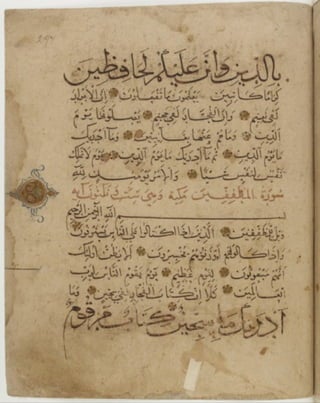 بالدين وإن عليكم لحافظين
كراما كاتبين يعلمون ما تفعلون إن الأبرار
لفي نعيم وإن الفجار لفي جحيم يصلونها يوم
الدين وما هم عنها بغائبين وما أدريك
ما يوم الدين ثم ما أدريك ما يوم الدين يوم لا تملك
نفس لنفس شيئا والأمر يومئذ لله
سورة المطففين مكية وهي ست وثلثون آية
بسم الله الرحمن الرحيم
ويل للمطففين الذين إذا اكتالوا على الناس يستوفون
وإذا كالوهم أو وزنوهم يخسرون ألا يظن أولئك
أنهم مبعوثون ليوم عظيم يوم يقوم الناس لرب
العالمين كلا إن كتاب الفجار لفي سجين وما
أدريك ما سجين كتاب مرقوم